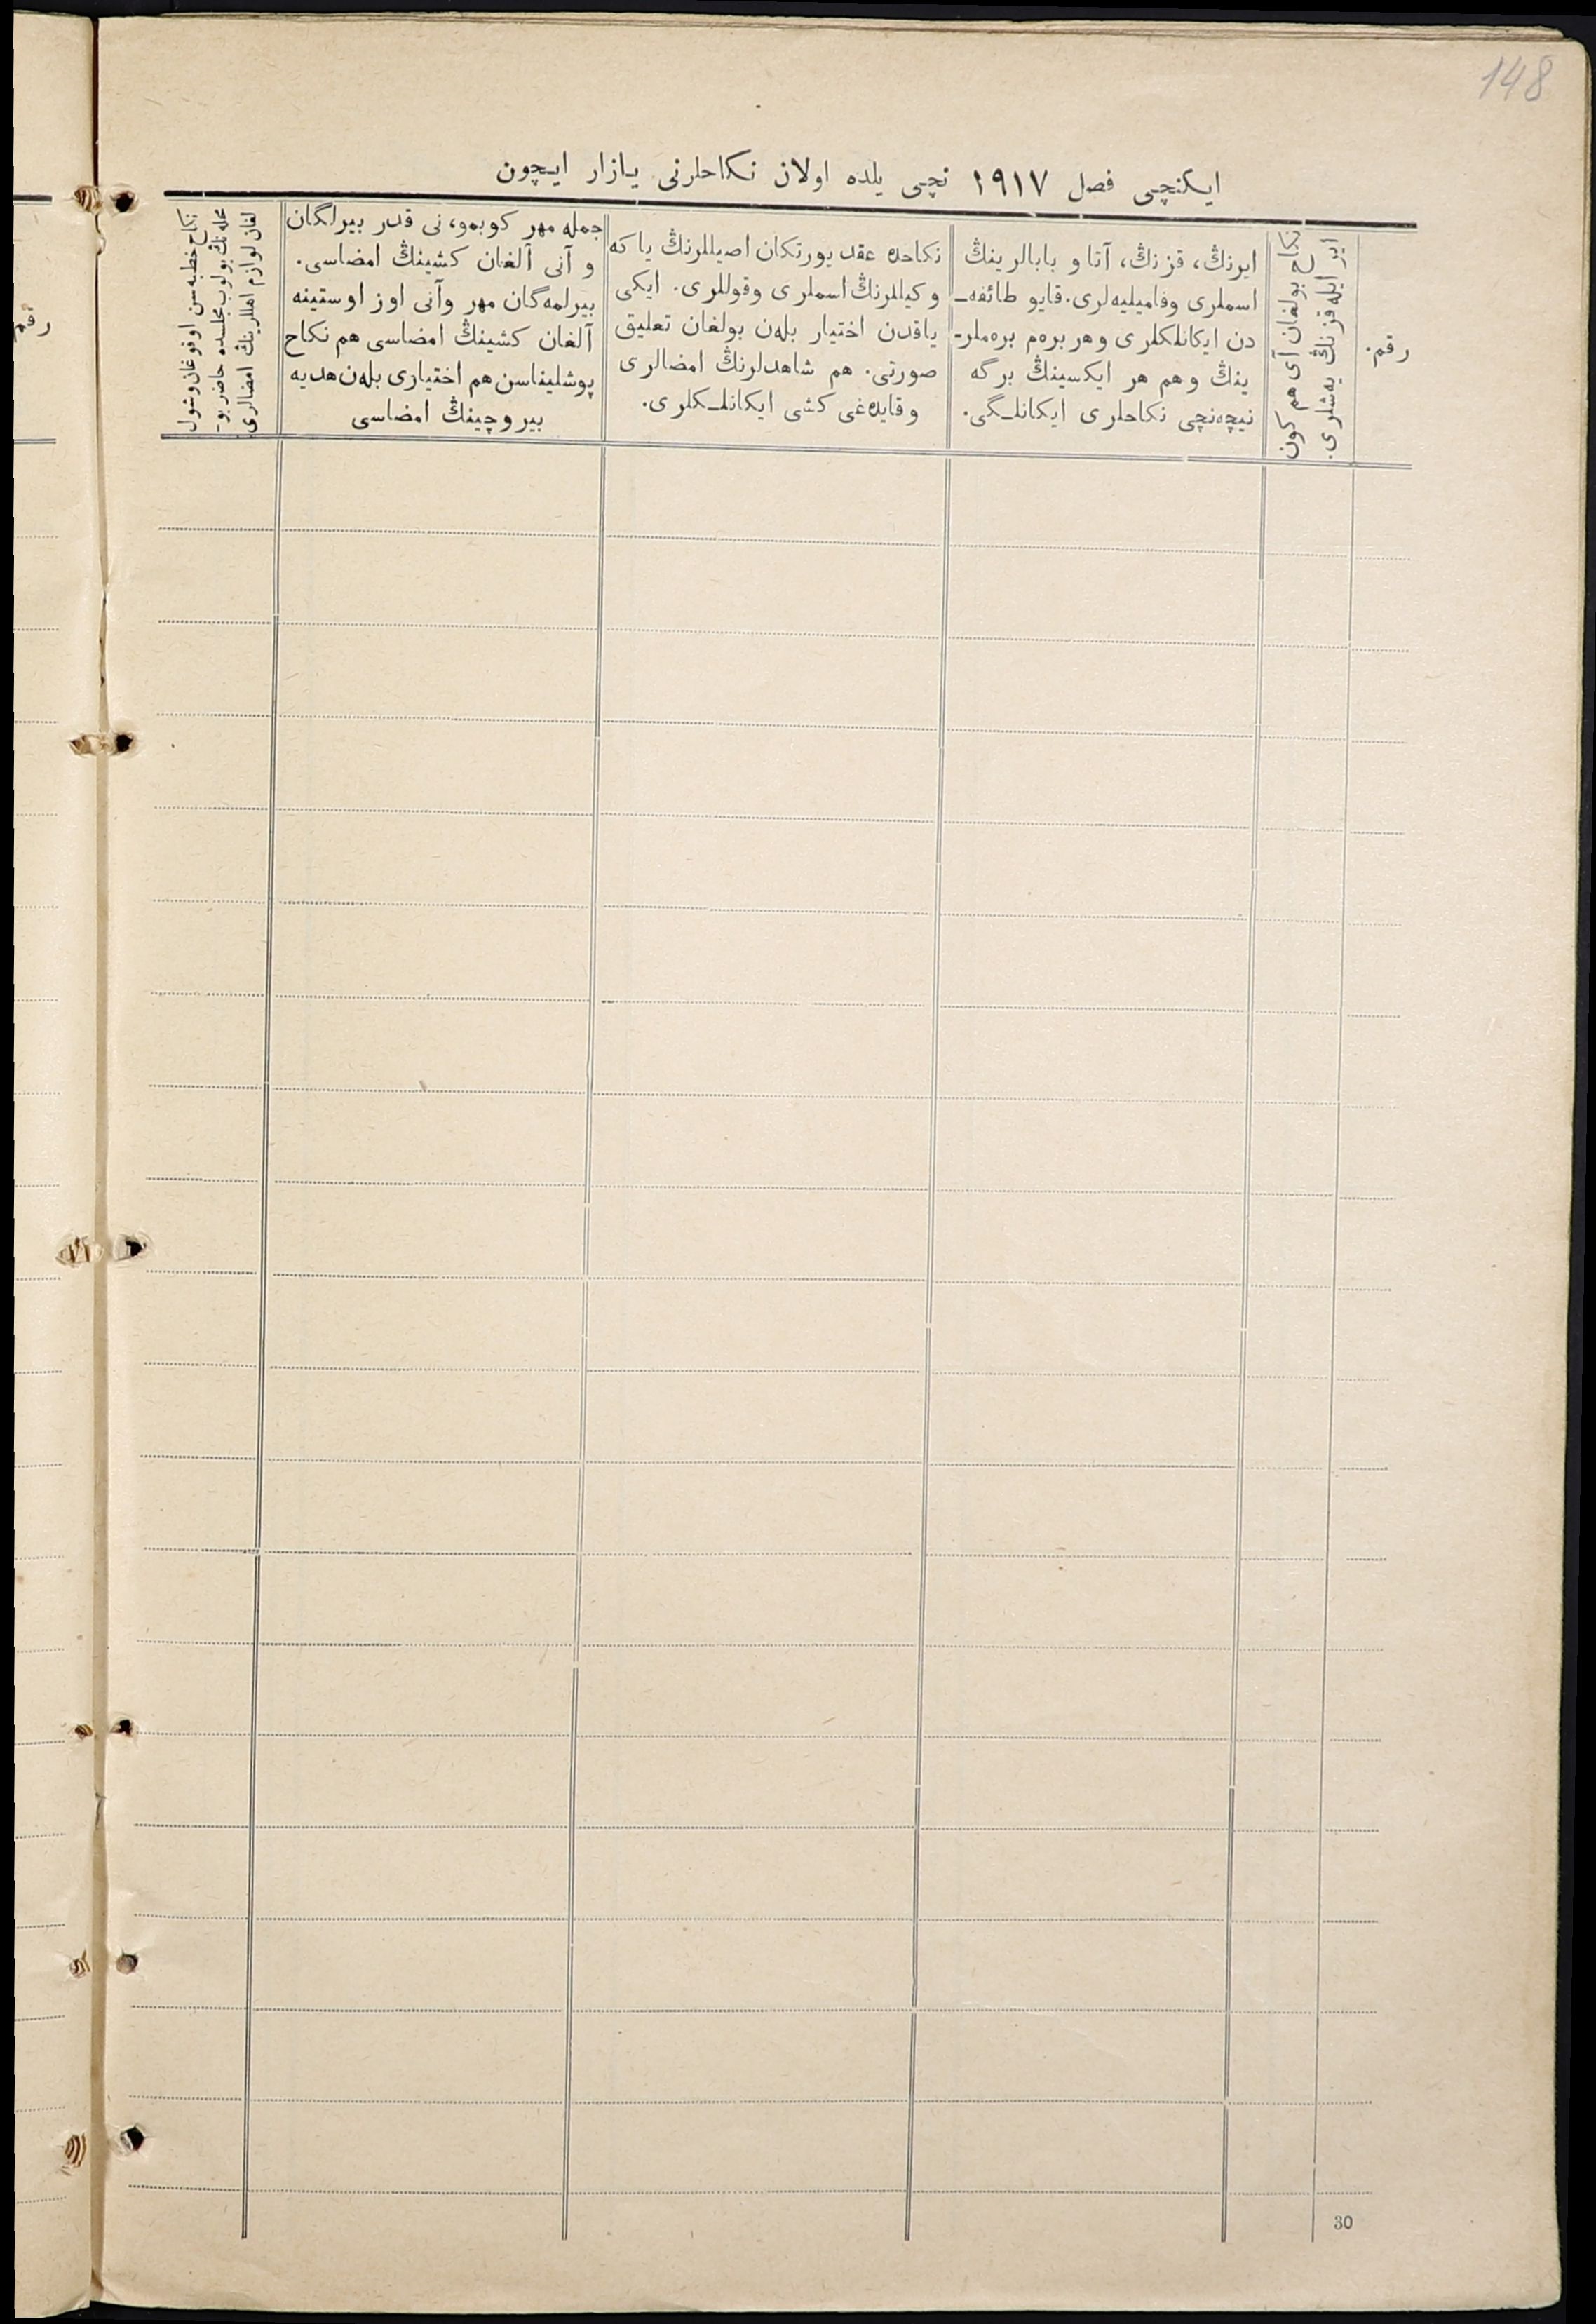 148
ایکنچی فصل ۱۹۱۷ نچی یلده اولان نکاحلرنی یازار ایچون
رقم.
ایر ایله قزنڭ یەشلری.
نکاح بولغان آی هم کون
ایرنڭ، قزنڭ، آتا و بابالرینڭ
اسملری وفامیلیەلری. قایو طائفەـ
دن ایکانلکلری وهر برەم برەملرـ
ینڭ وهم هر ایکسینڭ برگه
نیچەنچی نکاحلری ایکانلـگی.
نکاحده عقد یورتکان اصیللرنڭ یا که
وکیللرنڭ اسملری وقوللری. ایکی
یاقدن اختیار بلەن بولغان تعلیق
صورتی. هم شاهدلرنڭ امضالری
وقایدەغی کشی ایکانلـکلری.
جمله مهر کوبمو، نی قدر بیرلگان
و آنی آلغان کشینڭ امضاسی.
بیرلمەگان مهر وآنی اوز اوستینه
آلغان کشینڭ امضاسی هم نکاح
پوشلیناسن هم اختیاری بلەن هدیه
بیروچینڭ امضاسی
نکاح خطبەسن اوقوغان وشول
محلەنڭ بولوب مجلسده حاضر بوـ
لغان لوازم اهللرینڭ امضالری
رقم
30